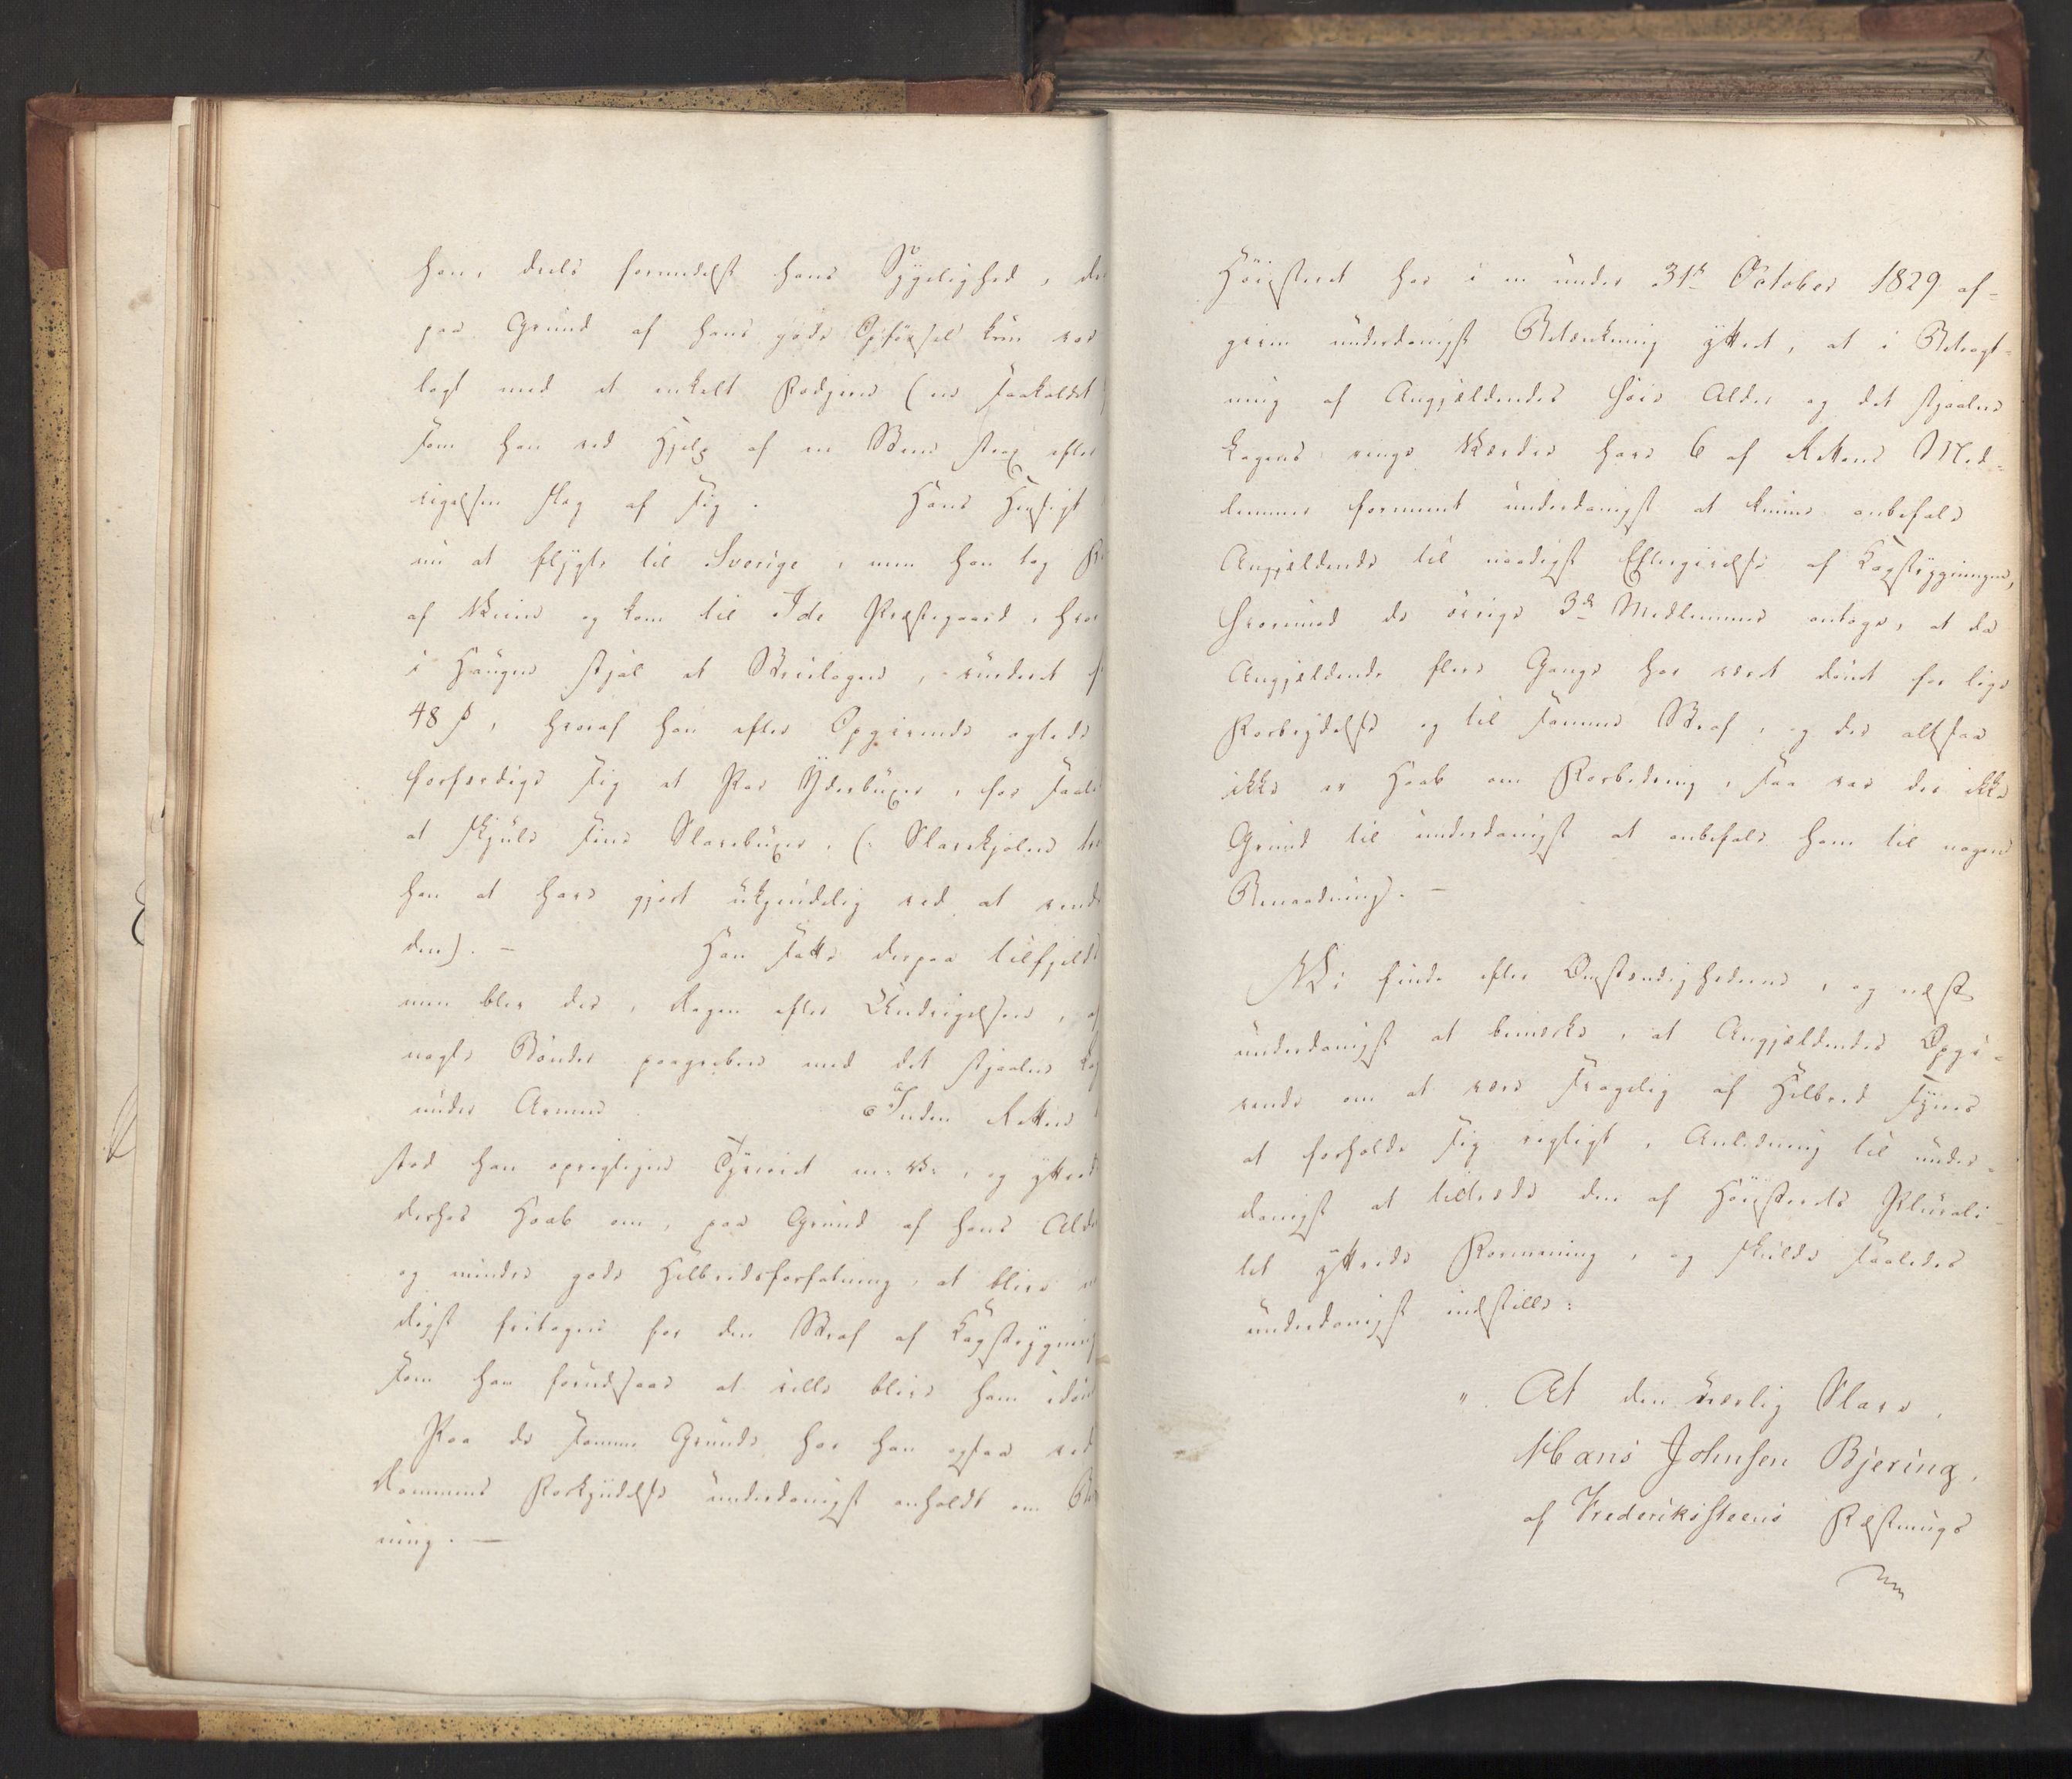 han, deels formedelst hans Sygelighed, de
paa Grund af hans gode Opførsel kun var
lagt med et enkelt Fodjern (en saakaldet
som han ved Hjelp af en Steen strax efter
vigelsen slog af sig. Hans Hensigt
nu at flygte til Sverige, men han tog F
af Veien og kom til Ide Præstegaard, hvor
i Haugen stjal et Sturlagen, vurderet f
48 ß, hvoraf han efter Opgivende agtede
forfærdige sig et Par Yderbuxer, for saale
at skjule sine Slavebuxer, (: Slavekjolen tro
han at have gjort ukjendelig ved at vende
den). - Han satte derpaa tilfjelds
men blev der, Dagen efter Undvigelsen, af
nogle Bønder paagreben med det stjaalne Lag
under Armen. Inden Retten
stod han oprigtigen Tyveriet m: V:, og yttrede
derhos Haab om, paa Grund af hans Alder
og mindre gode Helbredsforfatning, at blive n
digst fritagen for den Straf af Kagstrygning
som han forudsaae at ville blive ham idømt
Paa de samme Grunde har han ogsaa ved
Dommens Forkyndelse underdanigst anholdt om Be
ning. —
Høiesteret har i en under 31te October 1829 af-
given underdanigst Betænkning yttret, at i Betragt-
ning af Angjældendes høie Alder og det stjaalne
Lagens ringe Værdie have 6 af Rettens Med-
lemmer formeent underdanigst at kunne anbefale
Angjældende til naadigst Eftergivelse af Kagstrygningen,
hvorimod de øvrige 3de Medlemmer antage, at da
Angjældende flere Gange har været dømt for lige
Forbrydelse og til samme Straf, og der altsaa
ikke er Haab om Forbedring, saa var der ikke
Grund til underdanigst at anbefale ham til nogen
Benaadning. —
Vi finde efter Omstændighederne, og næst
underdanigst at bemærke, at Angjældendes Opgi-
vende om at være svagelig af Helbred synes
at forholde sig rigtigt, Anledning til under-
danigst at tiltræde den af Høiesterets Plurali-
tet yttrede Formening, og skulde saaledes
underdanigst indstille:
„ At den ærlig Slave,
Hans Johnsen Bjering,
af Frederikssteens Fæstnings